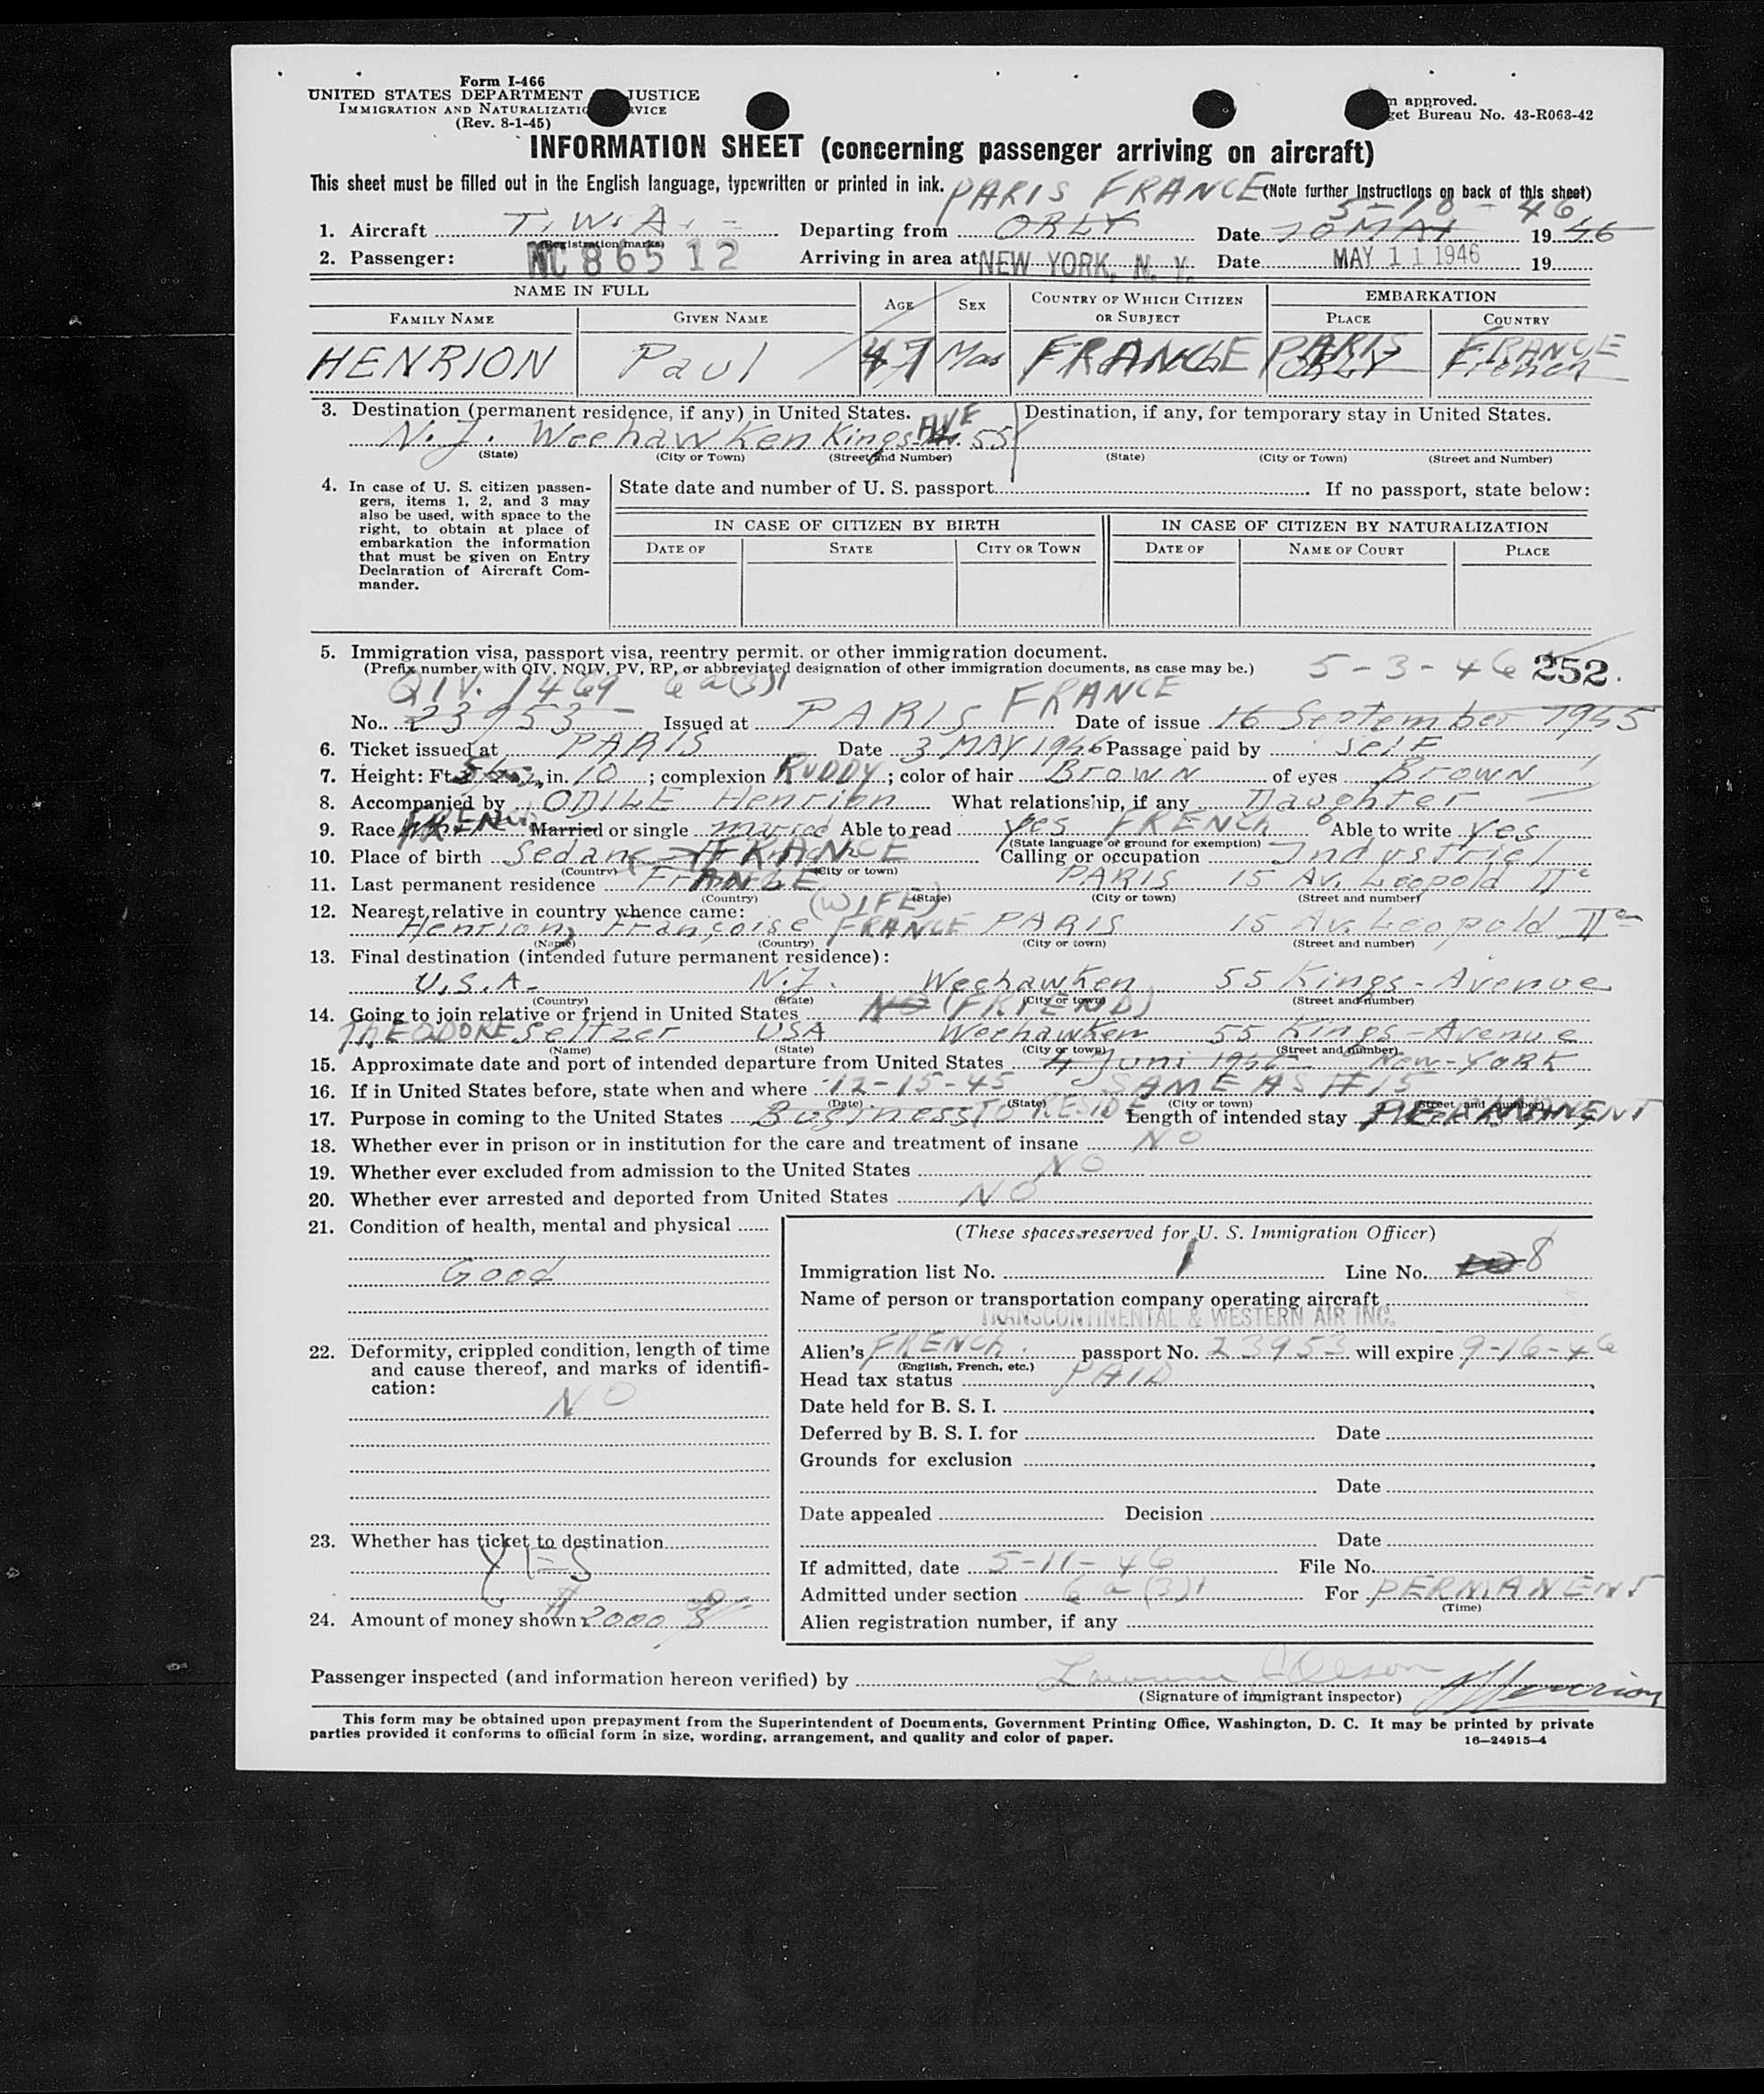 Form I-466
UNITED STATES DEPARTMENT JUSTICE
IMMIGRATION AND NATURALIZATIO RVICE
(Rev. 8-1-45)
m approved.
get Bureau No. 43-R063-42
INFORMATION SHEET (concerning passenger arriving on aircraft)
This sheet must be filled out in the English language, typewritten or printed in ink. PARIS FRANCE (Note further instructions on back of this sheet)
5-10-46
1. Aircraft T.W.A. Departing from ORLY Date 10 MAY 1946
(Registration marks)
2. Passenger: NC 86512 Arriving in area at NEW YORK, N. Y. Date MAY 11 1946 19
NAME IN FULL AGE SEX COUNTRY OF WHICH CITIZEN OR SUBJECT EMBARKATION
FAMILY NAME GIVEN NAME PLACE COUNTRY
HENRION Paul 47 Mas FRANCE PARIS ORLY FRANCE French
3. Destination (permanent residence, if any) in United States. Destination, if any, for temporary stay in United States.
N.J. Weehawken Kings AVE 55
(State) (City or Town) (Street and Number) (State) (City or Town) (Street and Number)
4. In case of U. S. citizen passengers, items 1, 2, and 3 may also be used, with space to the right, to obtain at place of embarkation the information that must be given on Entry Declaration of Aircraft Commander.
State date and number of U. S. passport If no passport, state below:
IN CASE OF CITIZEN BY BIRTH IN CASE OF CITIZEN BY NATURALIZATION
DATE OF STATE CITY OR TOWN DATE OF NAME OF COURT PLACE
5. Immigration visa, passport visa, reentry permit, or other immigration document.
(Prefix number with QIV, NQIV, PV, RP, or abbreviated designation of other immigration documents, as case may be.) 5-3-46 252.
QIV. 1469 6a(3)1 FRANCE
No. 23953 Issued at PARIS Date of issue 16 September 1945
6. Ticket issued at PARIS Date 3 MAY 1946 Passage paid by Self
7. Height: Ft. 5 in. 10; complexion RUDDY; color of hair Brown of eyes Brown
8. Accompanied by ODILE Henrion What relationship, if any Daughter
9. Race FRENCH Married or single married Able to read yes FRENCH Able to write yes
(State language or ground for exemption)
10. Place of birth Sedan FRANCE Calling or occupation Industriel
(Country) (City or town)
11. Last permanent residence FRANCE PARIS 15 Av. Leopold II
(Country) (State) (City or town) (Street and number)
12. Nearest relative in country whence came: (WIFE)
Henrion, Françoise FRANCE PARIS 15 Av. Leopold II
(Name) (Country) (City or town) (Street and number)
13. Final destination (intended future permanent residence):
U.S.A. N.J. Weehawken 55 Kings-Avenue
(Country) (State) (City or town) (Street and number)
14. Going to join relative or friend in United States NO (FRIEND)
THEODORE Seltzer USA Weehawken 55 Kings-Avenue
(Name) (State) (City or town) (Street and number)
15. Approximate date and port of intended departure from United States 4 Juni 1946 New-York
16. If in United States before, state when and where 12-15-45 SAME AS #15
(Date) (State) (City or town) (Street and number)
17. Purpose in coming to the United States Business TO RESIDE Length of intended stay PERMANENT
18. Whether ever in prison or in institution for the care and treatment of insane NO
19. Whether ever excluded from admission to the United States NO
20. Whether ever arrested and deported from United States NO
21. Condition of health, mental and physical
Good
22. Deformity, crippled condition, length of time and cause thereof, and marks of identification:
NO
23. Whether has ticket to destination
YES
24. Amount of money shown $2000
(These spaces reserved for U. S. Immigration Officer)
Immigration list No. 1 Line No. 8
Name of person or transportation company operating aircraft
TRANSCONTINENTAL & WESTERN AIR INC.
Alien's FRENCH passport No. 23953 will expire 9-16-46
(English, French, etc.)
Head tax status PAID
Date held for B. S. I.
Deferred by B. S. I. for Date
Grounds for exclusion
Date
Date appealed Decision
Date
If admitted, date 5-11-46 File No.
Admitted under section 6a(3)1 For PERMANENT
(Time)
Alien registration number, if any
Passenger inspected (and information hereon verified) by Oleson Henrion
(Signature of immigrant inspector)
This form may be obtained upon prepayment from the Superintendent of Documents, Government Printing Office, Washington, D. C. It may be printed by private
parties provided it conforms to official form in size, wording, arrangement, and quality and color of paper.
16—24915-4